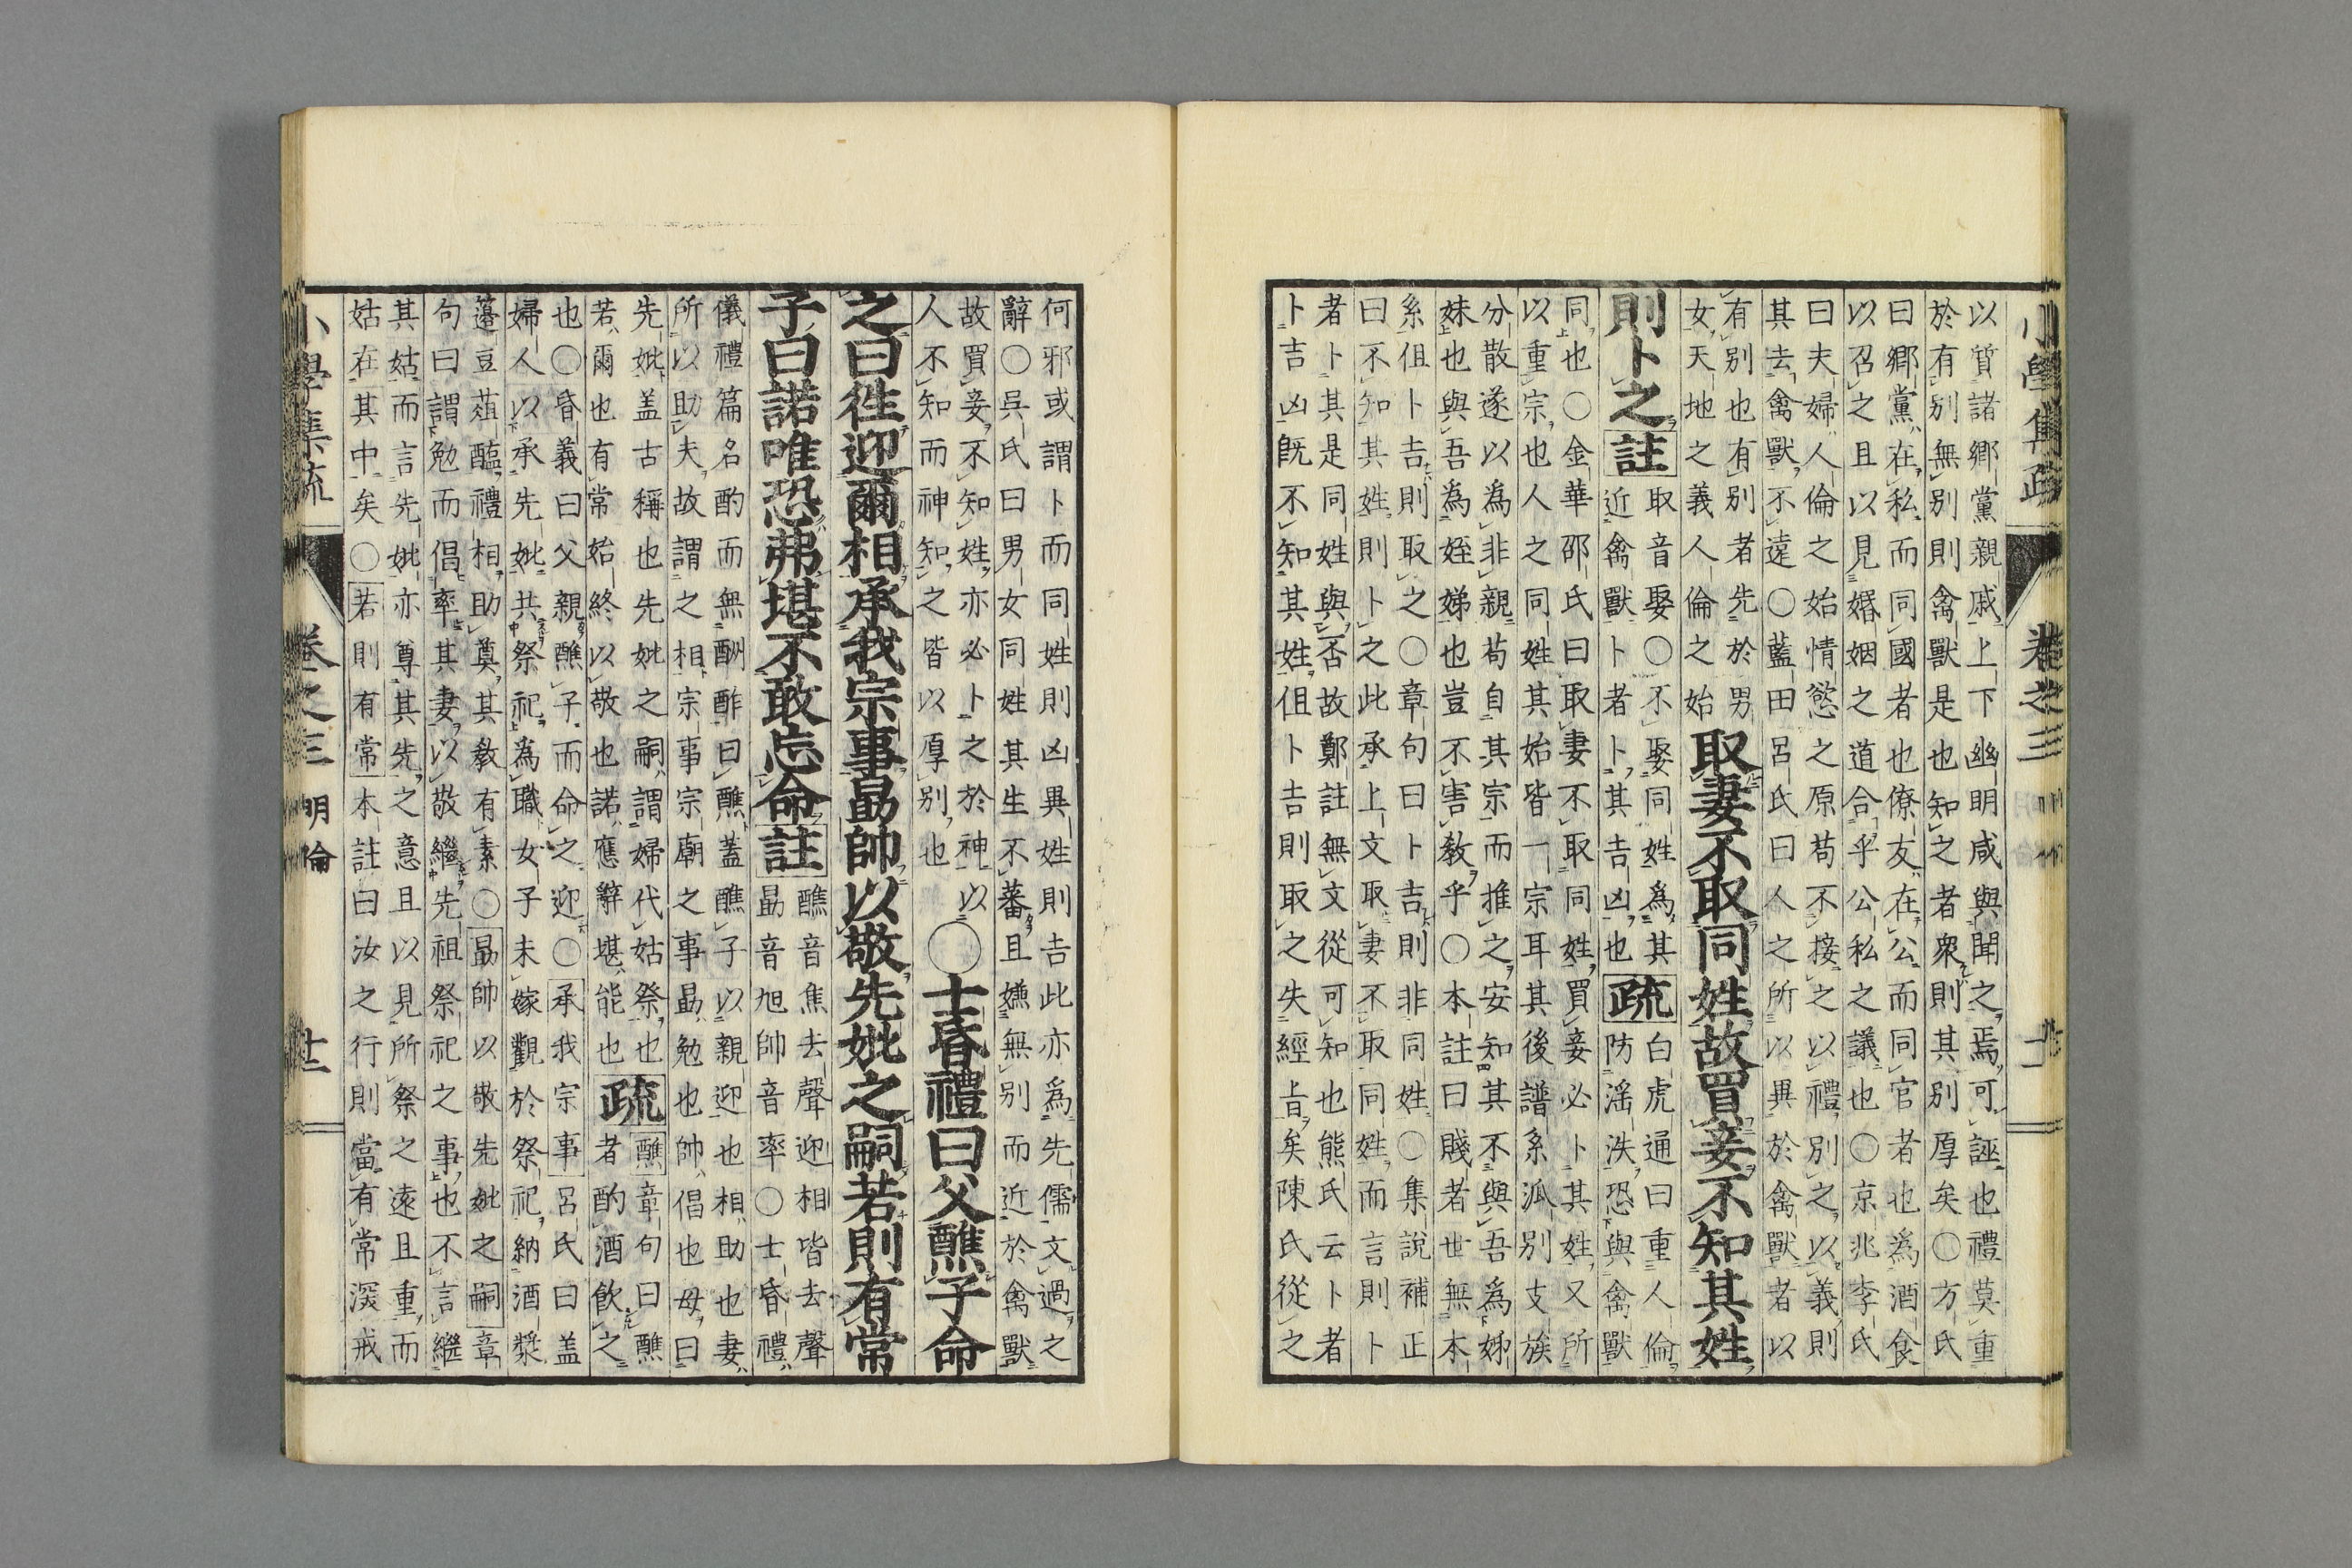 以質諸鄉黨親戚上下幽明咸與聞之焉可誣也禮莫重
於有別無別則禽獸是也知之者衆則其別厚矣〇方氏
曰鄉黨在私而同國者也僚友在公而同官者也爲酒食
以召之且以見婚姻之道合乎公私之議也〇京兆李氏
曰夫婦人倫之始情慾之原苟不接之以禮別之以義則
其去禽獸不遠〇藍田呂氏曰人之所以異於禽獸者以
有別也有別者先於男
女天地之義人倫之始
取妻不取同姓故買妾不知其姓
則卜之註
取音娶〇不娶同姓爲其
近禽獸卜者卜其吉凶也
疏
白虎通曰重人倫
防滛泆恐與禽獸
同也〇金華邵氏曰取妻不取同姓買妾必卜其姓又所
以重宗也人之同姓其始皆一宗耳其後譜系派別支族
分散遂以為非親苟自其宗而推之安知其不與吾爲姊
妹也與吾爲姪娣也豈不害教乎〇本註曰賤者世無本
系但卜吉則取之〇章句曰卜吉則非同姓〇集說補正
曰不知其姓則卜之此承上文取妻不取同姓而言則卜
者卜其是同姓與否故鄭註無文從可知也熊氏云卜者
卜吉凶旣不知其姓但卜吉則取之失經旨矣陳氏從之
小學集疏
卷之三
何邪或謂卜而同姓則凶異姓則吉此亦爲先儒文過之
辭〇吳氏曰男女同姓其生不蕃且嫌無別而近於禽獸
故買妾不知姓亦必卜之於神以
人不知而神知之皆以厚別也
〇士昏禮曰父醮子命
之曰徃迎爾相承我宗事勗帥以敬先妣之嗣若則有常
子曰諾唯恐弗堪不敢忘命註
醮音焦去聲迎相皆去聲
勗音旭帥音率〇士昏禮
儀禮篇名酌而無酬酢曰醮蓋醮子以親迎也相助也妻
所以助夫故謂之相宗事宗廟之事勗勉也帥倡也母曰
先妣盖古稱也先妣之嗣謂婦代姑祭也
若爾也有常始終以敬也諾應辭堪能也
疏
醮章句曰醮
者酌酒飲之
也〇昏義曰父親醮子而命之迎〇承我宗事呂氏曰盖
婦人以承先妣共祭祀為職女子未嫁觀於祭祀納酒漿
籩豆葅醢禮相助奠其教有素〇勗帥以敬先妣之嗣章
句曰謂勉而倡率其妻以敬繼先祖祭祀之事也不言繼
其姑而言先妣亦尊其先之意且以見所祭之遠且重而
姑在其中矣〇若則有常本註曰汝之行則當有常深戒
小學集疏
卷之三
明倫
廿二